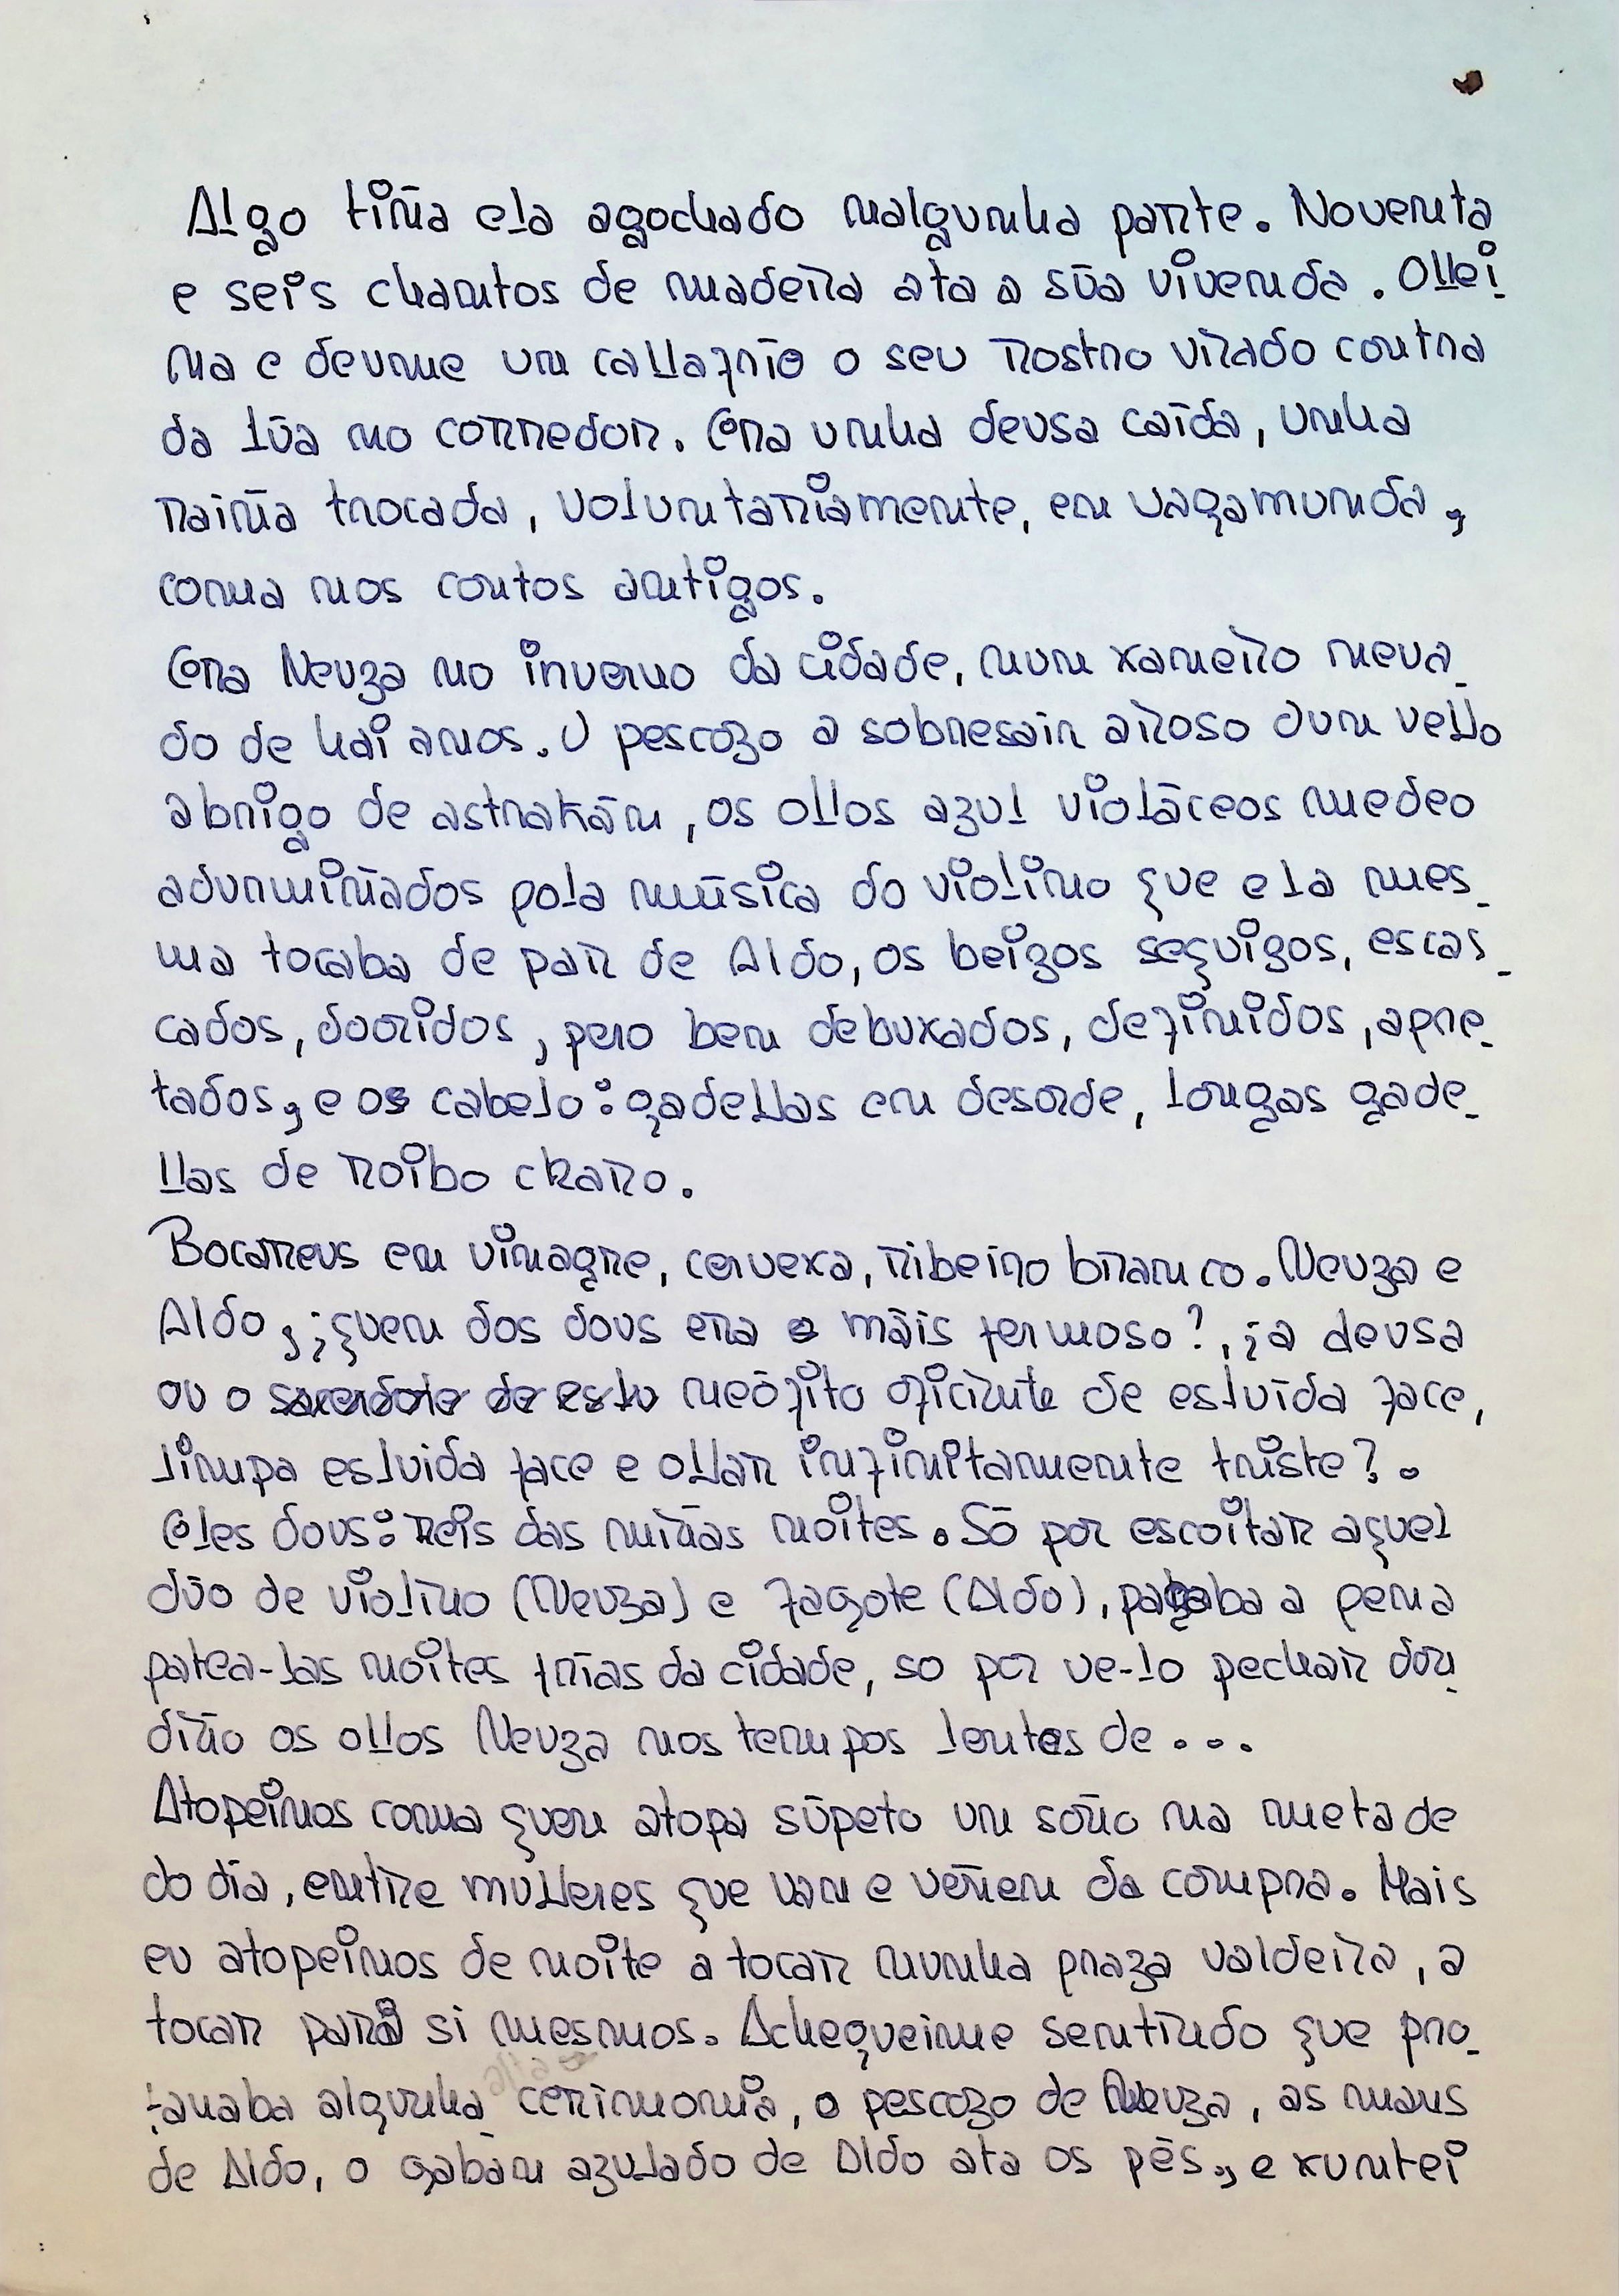 Algo tiña ela agochado nalgunha parte. Noventa
e seis chantos de madeira ata a súa vivenda. Ollei
na e deume un calafrío o seu rostro virado contra
da lúa no corredor. Era unha deusa caída, unha
raiña trocada, voluntariamente, en vagamunda,
coma nos contos antigos.
Era Neuza no inverno da cidade, num xaneiro neva_
do de hai anos. O pescozo a sobresair airoso dun vello
abrigo de astrakán, os ollos azul violáceos medeo
adurmiñados pola música do violino que ela mes_
ma tocaba de par de Aldo, os beizos sequizos, escas_
cados, dooridos, pero ben debuxados, definidos, apre_
tados, e os cabelo: gadellas en desorde, longas gade_
llas de roibo claro.
Bocareus en vinagre, cervexa, ribeiro branco. Neuza e
Aldo, ¿quen dos dous era o máis fermoso?, ¿a deusa
ou o neófito oficiante de esluída face,
limpa esluida face e ollar infinitamente triste?.
Eles dous: Reis das miñas noites. Só por escoitar aquel
dúo de violino (Neuza) e fagote (Aldo), pagaba a pena
patea-las noites frias da cidade, so por ve-lo pechar dou_
diño os ollos Neuza nos tempos lentos de ...
Atopeinos coma quen atopa súpeto un soño na metade
do dia, entre mulleres que van e veñen da compra. Mais
eu atopeinos de noite a tocar nunha praza valdeira, a
tocar para si mesmos. Achegueime sentindo que pro_
fanaba algunha cerimonia, o pescozo de Neuza, as mans
de Aldo, o gabán azulado de Aldo ata os pés, e xuntei